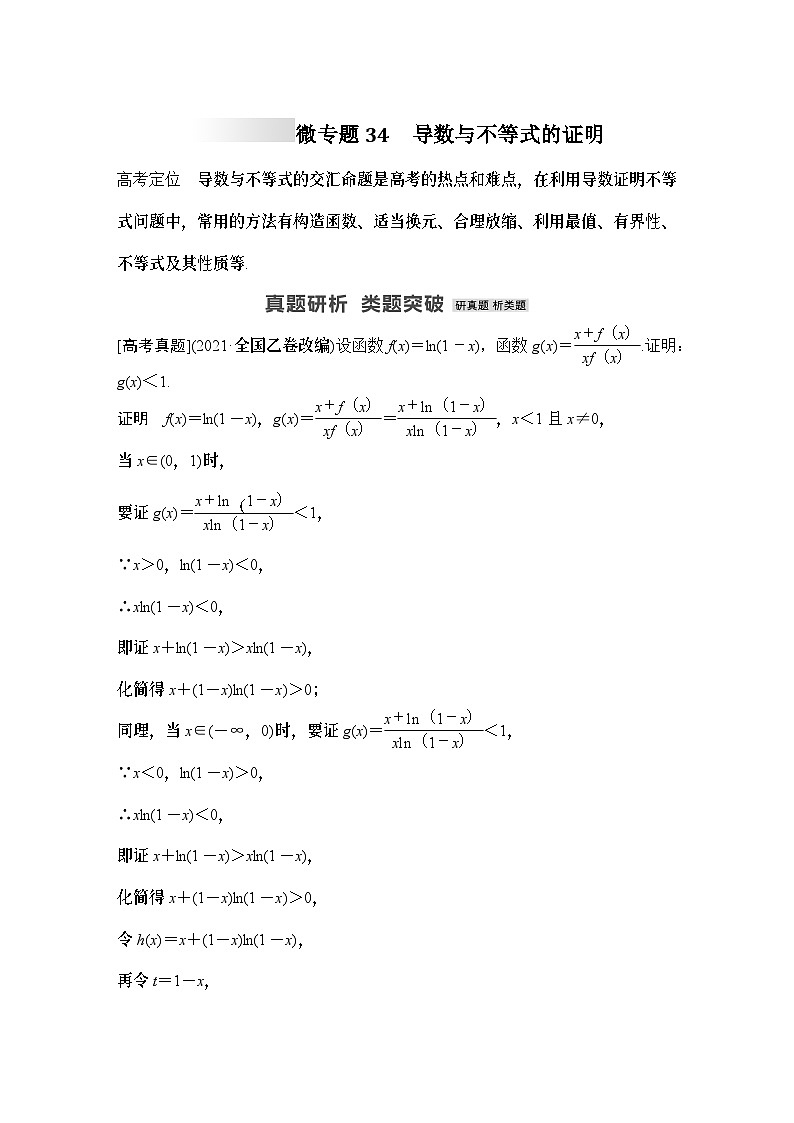 微专题34 导数与不等式的证明
高考定位 导数与不等式的交汇命题是高考的热点和难点，在利用导数证明不等
式问题中，常用的方法有构造函数、适当换元、合理放缩、利用最值、有界性、
不等式及其性质等.
真题研析 类题突破 研真题 析类题
[高考真题](2021·全国乙卷改编)设函数f(x)＝ln(1－x)，函数g(x)＝\frac{x＋f（x）}{xf（x）}.证明：
g(x)＜1.
证明 f(x)＝ln(1－x)，g(x)＝\frac{x＋f（x）}{xf（x）}＝\frac{x＋ln（1－x）}{xln（1－x）}，x＜1且x≠0，
当x∈(0，1)时，
要证g(x)＝\frac{x＋ln（1－x）}{xln（1－x）}＜1，
∵x＞0，ln(1－x)＜0，
∴xln(1－x)＜0，
即证x＋ln(1－x)＞xln(1－x)，
化简得x＋(1－x)ln(1－x)＞0；
同理，当x∈(－∞，0)时，要证g(x)＝\frac{x＋ln（1－x）}{xln（1－x）}＜1，
∵x＜0，ln(1－x)＞0，
∴xln(1－x)＜0，
即证x＋ln(1－x)＞xln(1－x)，
化简得x＋(1－x)ln(1－x)＞0，
令h(x)＝x＋(1－x)ln(1－x)，
再令t＝1－x，